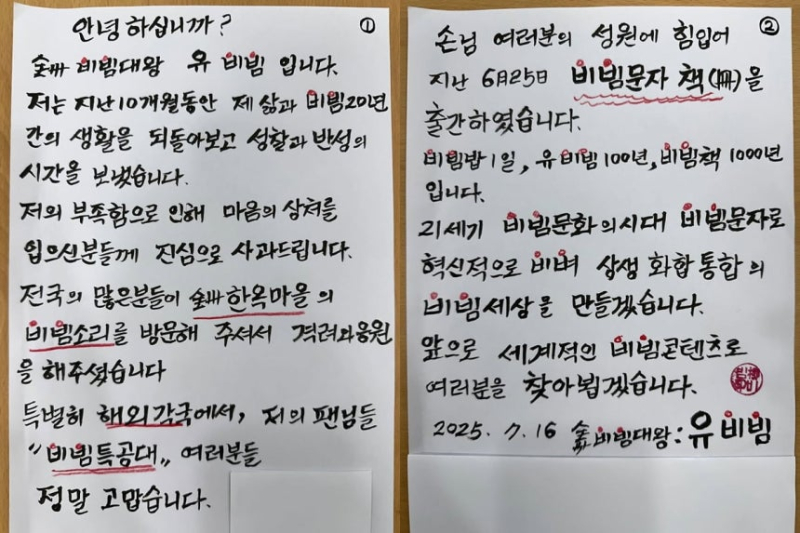 ①
안녕하십니까?
全州 비빔대왕 유 비빔 입니다.
저는 지난10개월동안 제 삶과 비빔20년
간의 생활을 되돌아보고 성찰과 반성의
시간을 보냈습니다.
저의 부족함으로 인해 마음의 상처를
입으신분들께 진심으로 사과드립니다.
전국의 많은분들이 全州 한옥마을의
비빔소리를 방문해 주셔서 격려와응원
을 해주셨습니다
특별히 해외각국에서, 저의 팬님들
"비빔특공대" 여러분들
정말 고맙습니다.
②
손님 여러분의 성원에 힘입어
지난 6月25日 비빔문자 책(冊)을
출간하였습니다.
비빔밥1일, 유비빔100년, 비빔책1000년
입니다.
21세기 비빔문화의시대 비빔문자로
혁신적으로 비벼 상생 화합통합의
비빔세상을 만들겠습니다.
앞으로 세계적인 비빔콘텐츠로
여러분을 찾아뵙겠습니다.
2025. 7. 16 全州비빔대왕: 유비빔